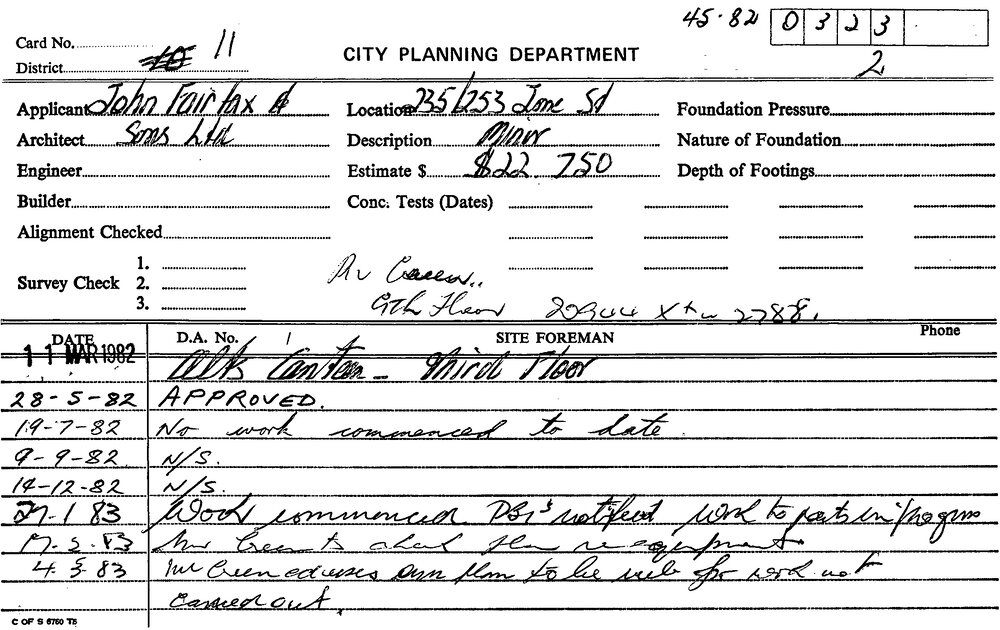 45·82 0 3 2 3
Card No. 11
CITY PLANNING DEPARTMENT 2
District
Applicant John Fairfax & Location 235/253 Jone St Foundation Pressure
Architect Sons Ltd Description Minor Nature of Foundation
Engineer Estimate $ $22.750 Depth of Footings
Builder Conc. Tests (Dates)
Alignment Checked
1.
Survey Check 2.
3. Floor 20944 X 2788.
DATE D.A. No. SITE FOREMAN Phone
11 MAR 1982 Alts Canteen - Third Floor
28-5-82 APPROVED.
19-7-82 No work commenced to date.
9-9-82 N/S.
14-12-82 N/S.
27.1 83 Work commenced. notified work to parts in progress
Mr Green to check plan requirements
4 3 83 Mr Green advises plan to be for work not
carried out.
C OF S 6760 T5